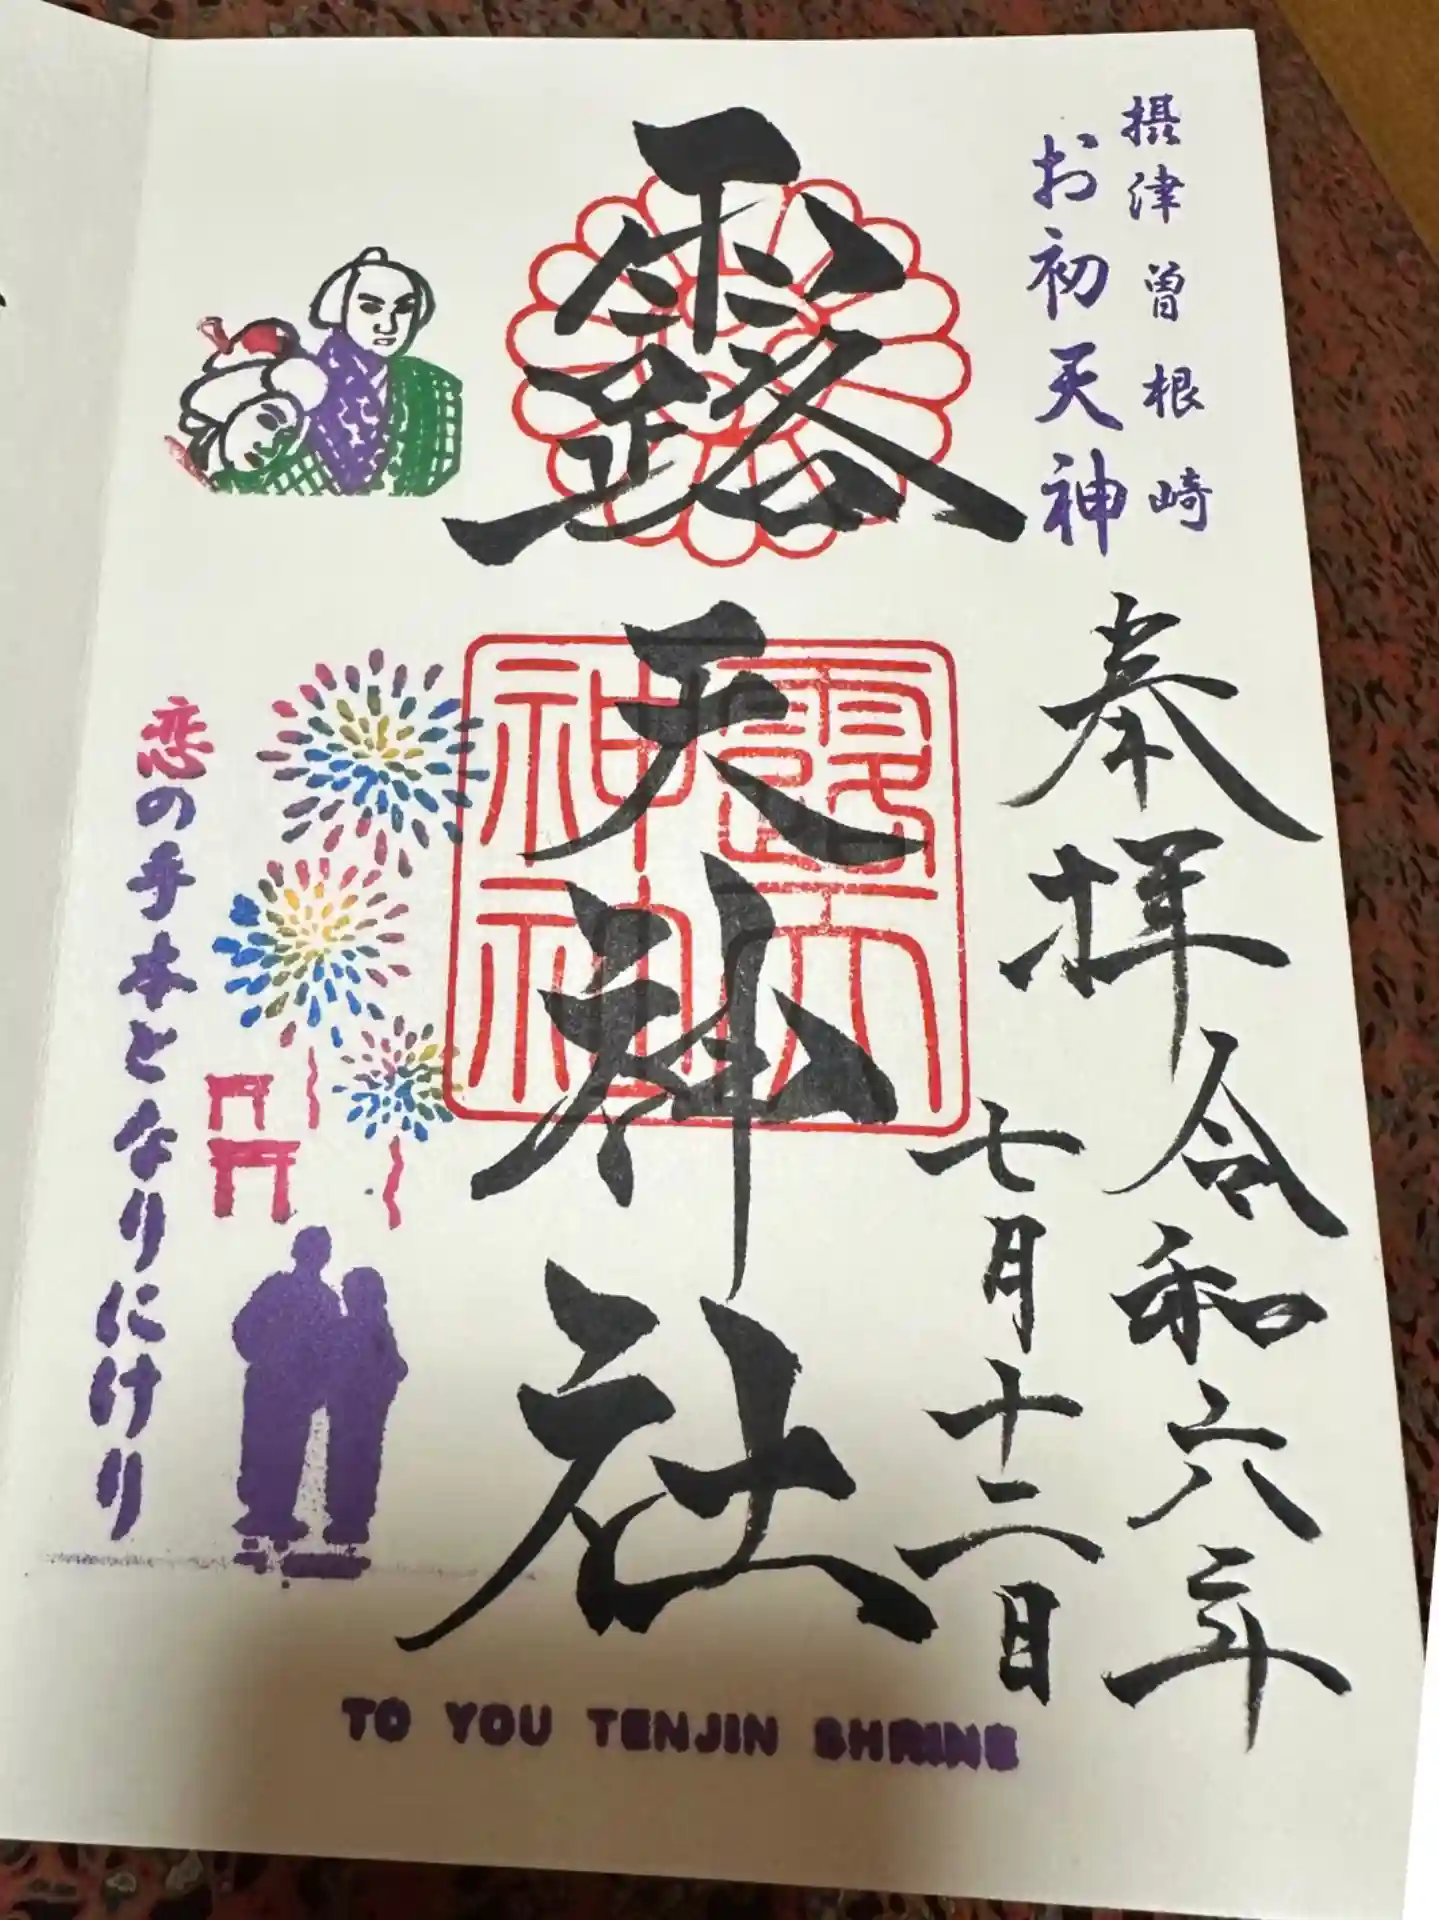 摂津曽根崎
お初天神
奉拝 令和六年
七月十二日
露天神社
露天神社
恋の手本となりにけり
TO YOU TENJIN SHRINE